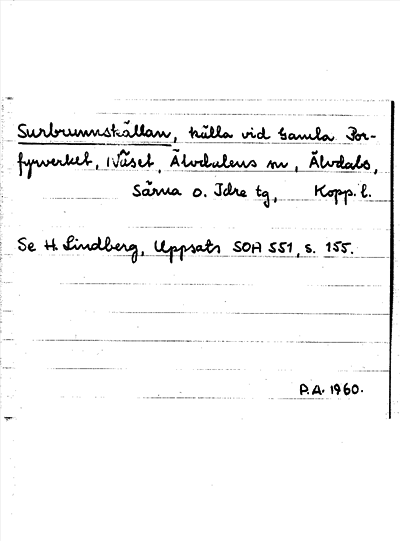 Surbrunnskällan, källa vid Gamla Por-
fyrverket, Näset, Älvdalens sn, Älvdals,
Särna o. Idre tg, Kopp. l.
Se H. Lindberg, Uppsats SOH 551, s. 155.
P.A. 1960.